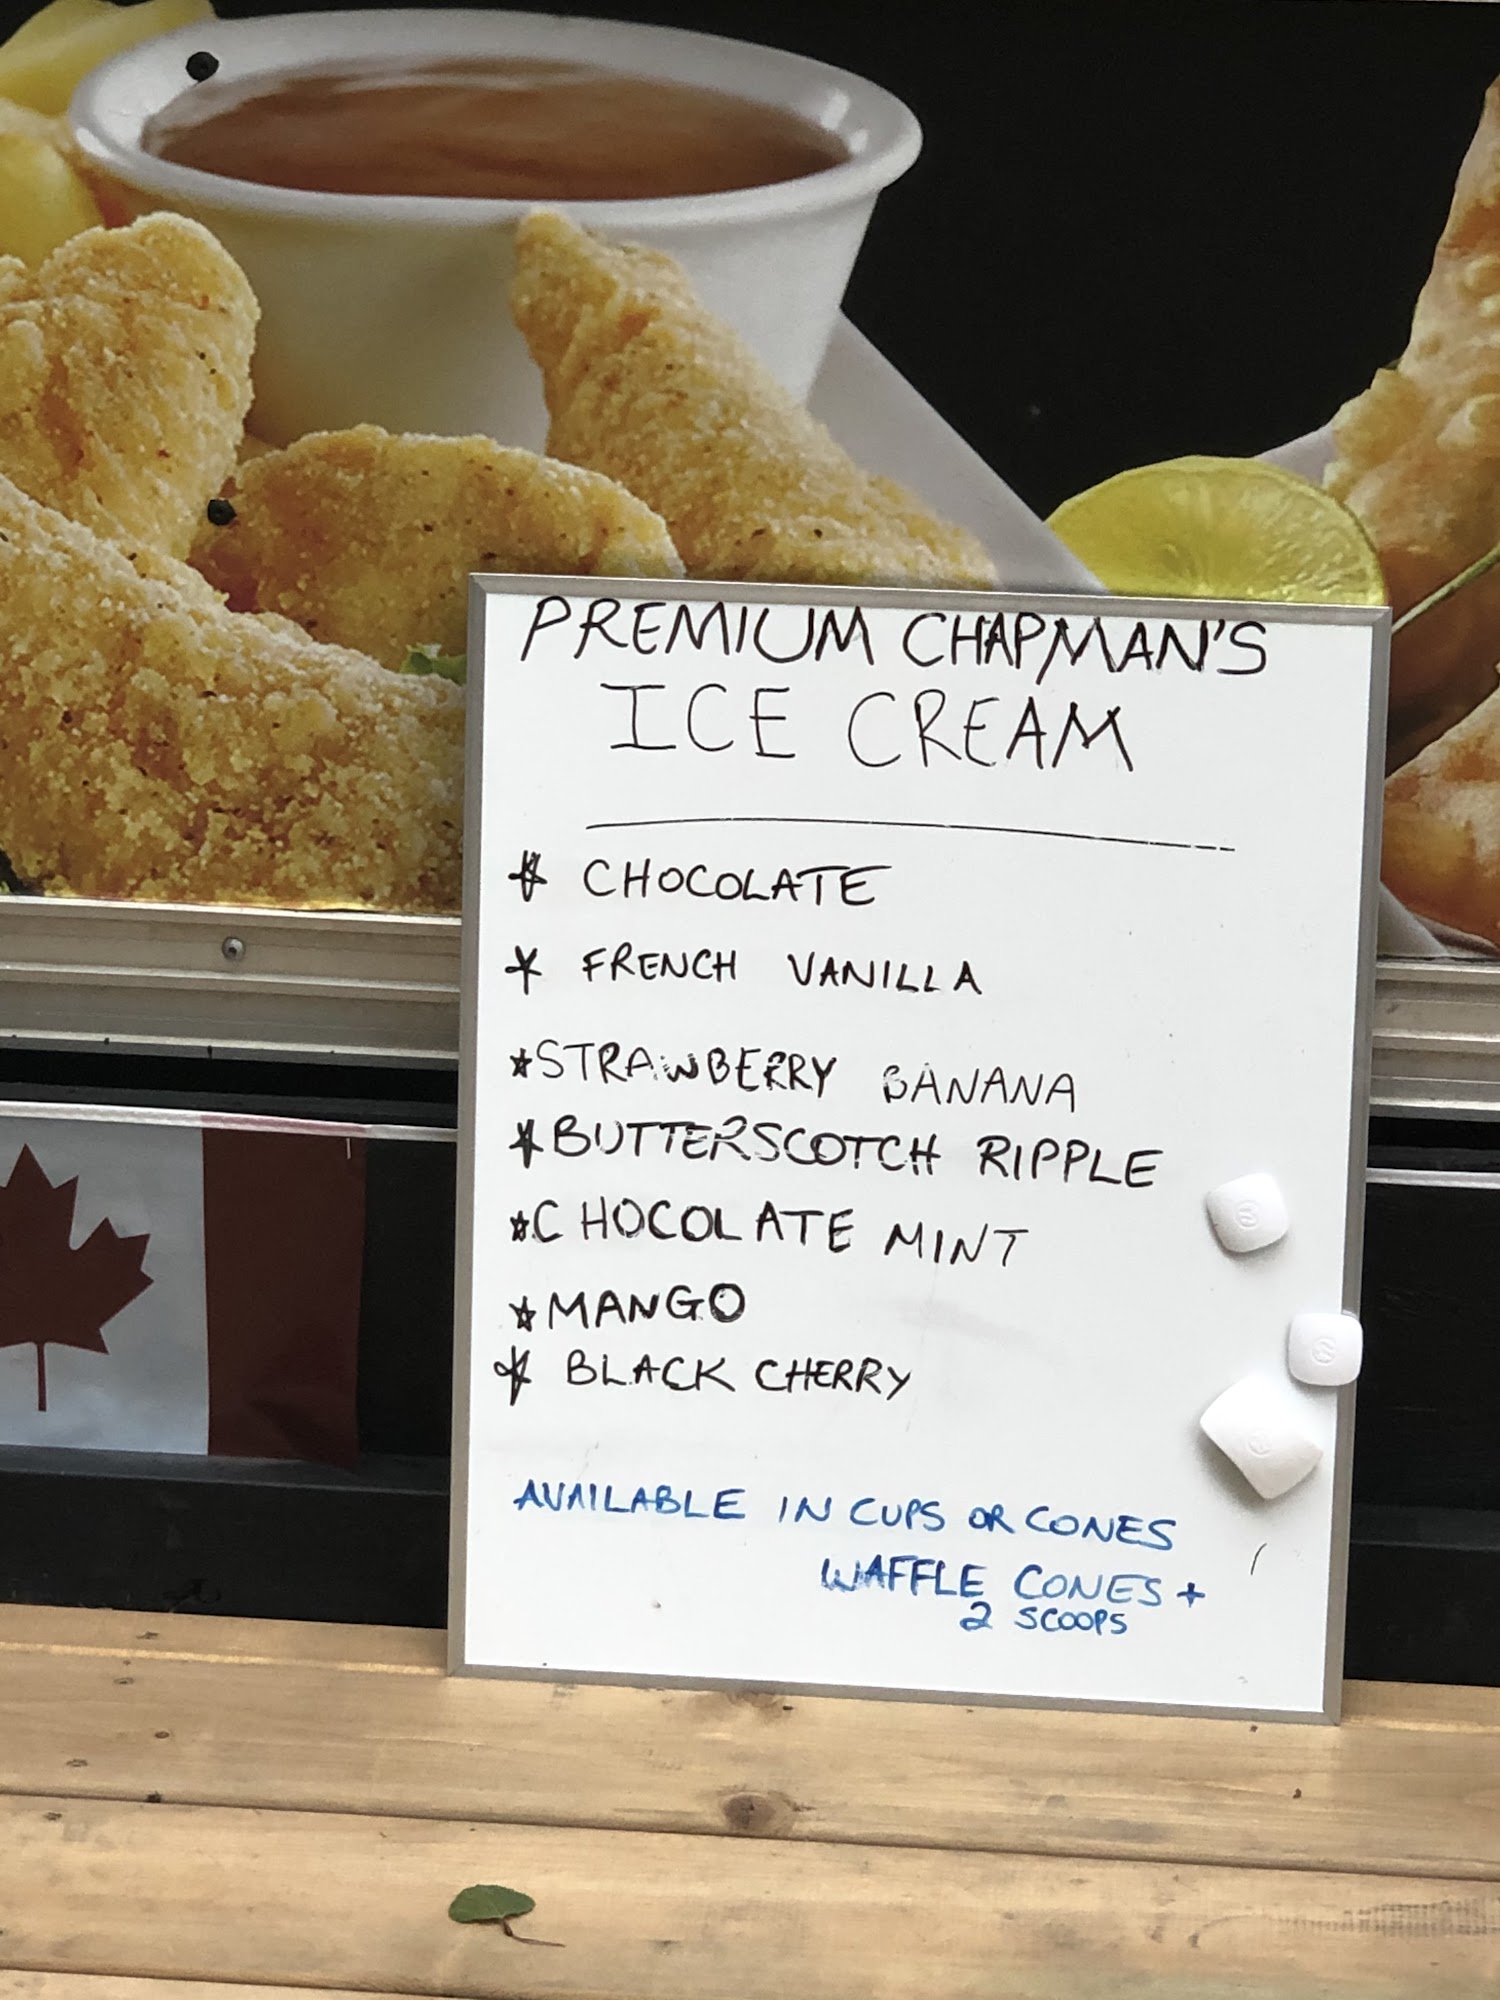 PREMIUM CHAPMAN'S
ICE CREAM
* CHOCOLATE
* FRENCH VANILLA
* STRAWBERRY BANANA
* BUTTERSCOTCH RIPPLE
* CHOCOLATE MINT
* MANGO
* BLACK CHERRY
AVAILABLE IN CUPS OR CONES
WAFFLE CONES +
2 SCOOPS